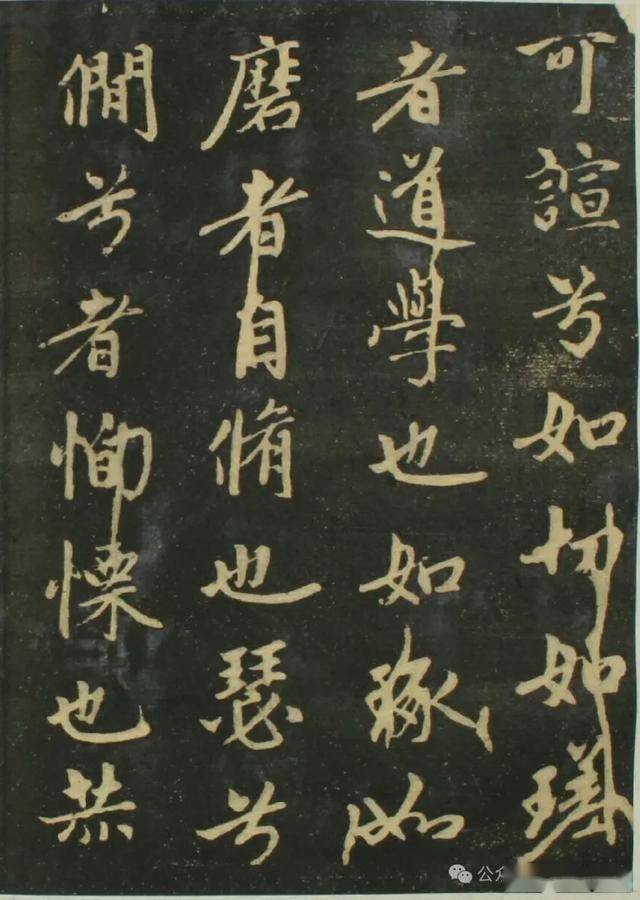 可諠兮如切如瑳
者道學也如琢如
磨者自脩也瑟兮
僩兮者恂慄也赫
公众